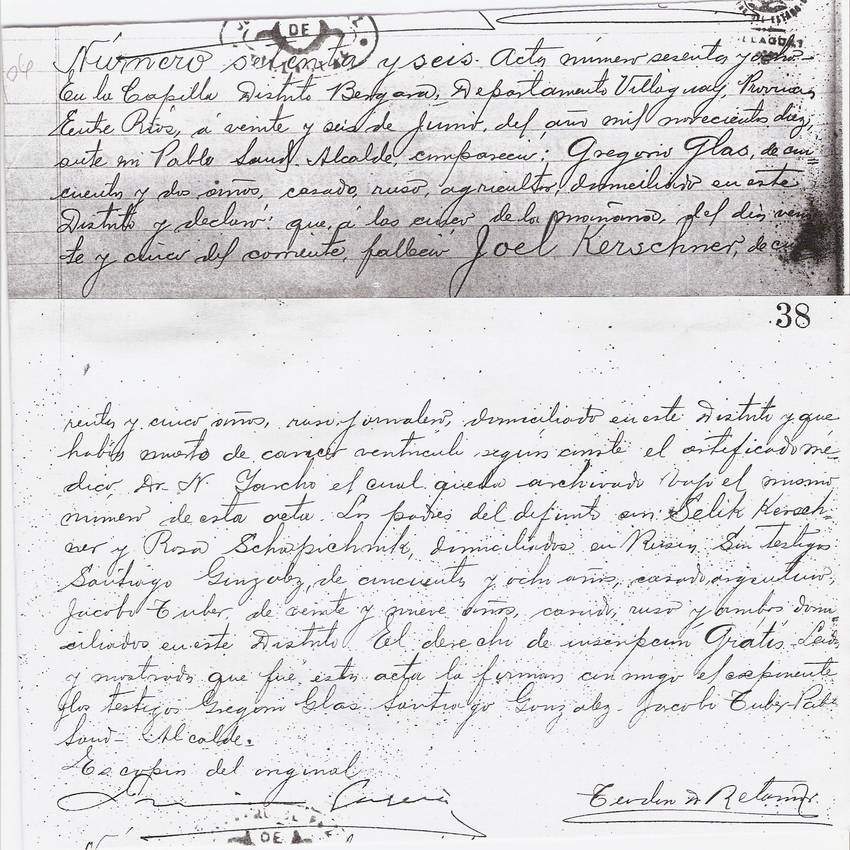 DE
LLAGUAY
Número setenta y seis. Acta número sesenta y ocho
En la Capilla Distrito Bergara, Departamento Villaguay, Provincia
Entre Rios, á veinte y seis de Junio, del año mil novecientos diez,
ante mi Pablo Saud Alcalde, compareció; Gregorio Glas, de cin-
cuenta y dos años, casado, ruso, agricultor, domiciliado en este
Distrito y declaró: que, á las cinco de la mañana, del dia vein
te y cinco del corriente, falleció Joel Kerschner, de cua
38
renta y cinco años, ruso, jornalero, domiciliado en este Distrito y que
habia muerto de cancer ventriculi según consta el certificado mé-
dico, Dr. N. Yarcho el cual queda archivado bajo el mismo
número de esta acta. Los padres del defunto son: Selik Kersch-
ner y Rosa Schapichnik, domiciliados en Rusia. Son testigos
Santiago González, de cincuenta y ocho años, casado, argentino,
Jacobo Tuber de veinte y nueve años, casado, ruso y ambos domi
ciliados en este Distrito El derecho de inscripción Grátis. Leida
y mostrada que fué, esta acta la firman conmigo el exponente
y los testigos Gregorio Glas. Santiago González. Jacobo Tuber. Pablo
Saud - Alcalde.
Es copia del original
DE